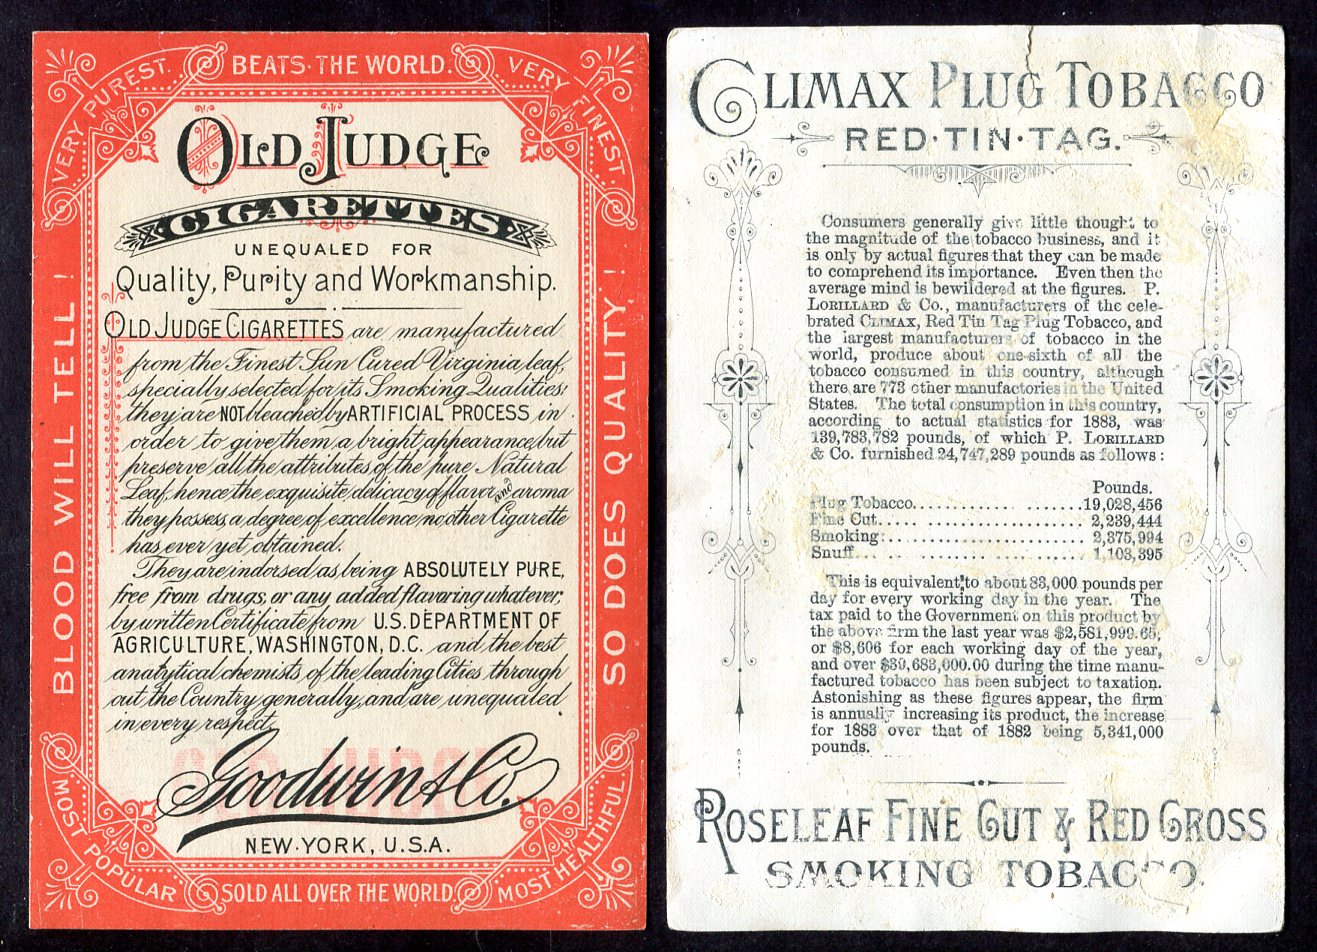 VERY PUREST.
BEATS THE WORLD.
VERY FINEST.
BLOOD WILL TELL!
OLD JUDGE
CIGARETTES
UNEQUALED FOR
Quality, Purity and Workmanship.
OLD JUDGE CIGARETTES are manufactured
from the Finest Sun Cured Virginia leaf,
specially selected for its Smoking Qualities:
they are NOT bleached by ARTIFICIAL PROCESS in
order to give them a bright appearance, but
preserve all the attributes of the pure Natural
Leaf, hence the exquisite delicacy of flavor and aroma
they possess, a degree of excellence no other Cigarette
has ever yet obtained.
They are indorsed as being ABSOLUTELY PURE,
free from drugs, or any added flavoring whatever,
by written Certificate from U.S. DEPARTMENT OF
AGRICULTURE, WASHINGTON, D.C. and the best
analytical chemists of the leading Cities through
out the Country generally, and are unequaled
in every respect.
Goodwin & Co.
NEW-YORK, U.S.A.
SO DOES QUALITY!
MOST POPULAR
SOLD ALL OVER THE WORLD.
MOST HEALTHFUL
CLIMAX PLUG TOBACCO
RED·TIN·TAG.
Consumers generally give little thought to
the magnitude of the tobacco business, and it
is only by actual figures that they can be made
to comprehend its importance. Even then the
average mind is bewildered at the figures. P.
LORILLARD & Co., manufacturers of the cele-
brated CLIMAX, Red Tin Tag Plug Tobacco, and
the largest manufacturers of tobacco in the
world, produce about one-sixth of all the
tobacco consumed in this country, although
there are 773 other manufactories in the United
States. The total consumption in this country,
according to actual statistics for 1883, was
139,783,782 pounds, of which P. LORILLARD
& Co. furnished 24,747,289 pounds as follows:
Pounds.
Plug Tobacco..................19,028,456
Fine Cut...................... 2,239,444
Smoking:...................... 2,375,994
Snuff......................... 1,103,395
This is equivalent to about 83,000 pounds per
day for every working day in the year. The
tax paid to the Government on this product by
the above firm the last year was $2,581,999.65,
or $8,606 for each working day of the year,
and over $39,683,000.00 during the time manu-
factured tobacco has been subject to taxation.
Astonishing as these figures appear, the firm
is annually increasing its product, the increase
for 1883 over that of 1882 being 5,341,000
pounds.
ROSELEAF FINE CUT & RED CROSS
SMOKING TOBACCO.